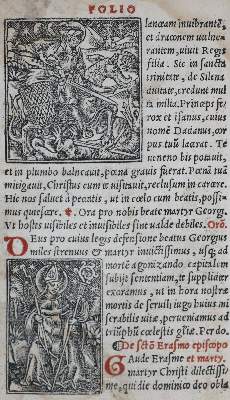 FOLIO
lanceam inuibrante,
et draconem uulne-
rantem, uiuit Regis
filia. Sic in sancta
trinitate, de Silena
ciuitate, credunt mul
ta milia. Princeps fe-
rox et insanus, cuius
nomen Dacianus, cor
pus tuū lacerat. Te
ueneno bis potauit,
et in plumbo balneauit, pœna grauis fuerat. Pœnā tuā
mitigauit, Christus cum te uisitauit, reclusum in carcere.
Hic nos saluet a peccatis, ut in cœlo cum beatis, possi-
mus quiescere. Ora pro nobis beate martyr Georgi.
Vt hostes uisibiles et inuisibiles sint ualde debiles. Orō.
DEus pro cuius legis defensione beatus Georgius
miles strenuus & martyr inuictissimus, usq; ad
mortē agonizando capitalem
subijt sententiam, te supplices
exoramus, ut in hora nostræ
mortis de seruili iugo huius mi
serabilis uitæ, perueniamus ad
triūphū cœlestis glīæ. Per do.
De sctō Erasmo episcopo
GAude Erasme et martyr.
martyr Christi dilectissi-
me, qui die dominico deo obla